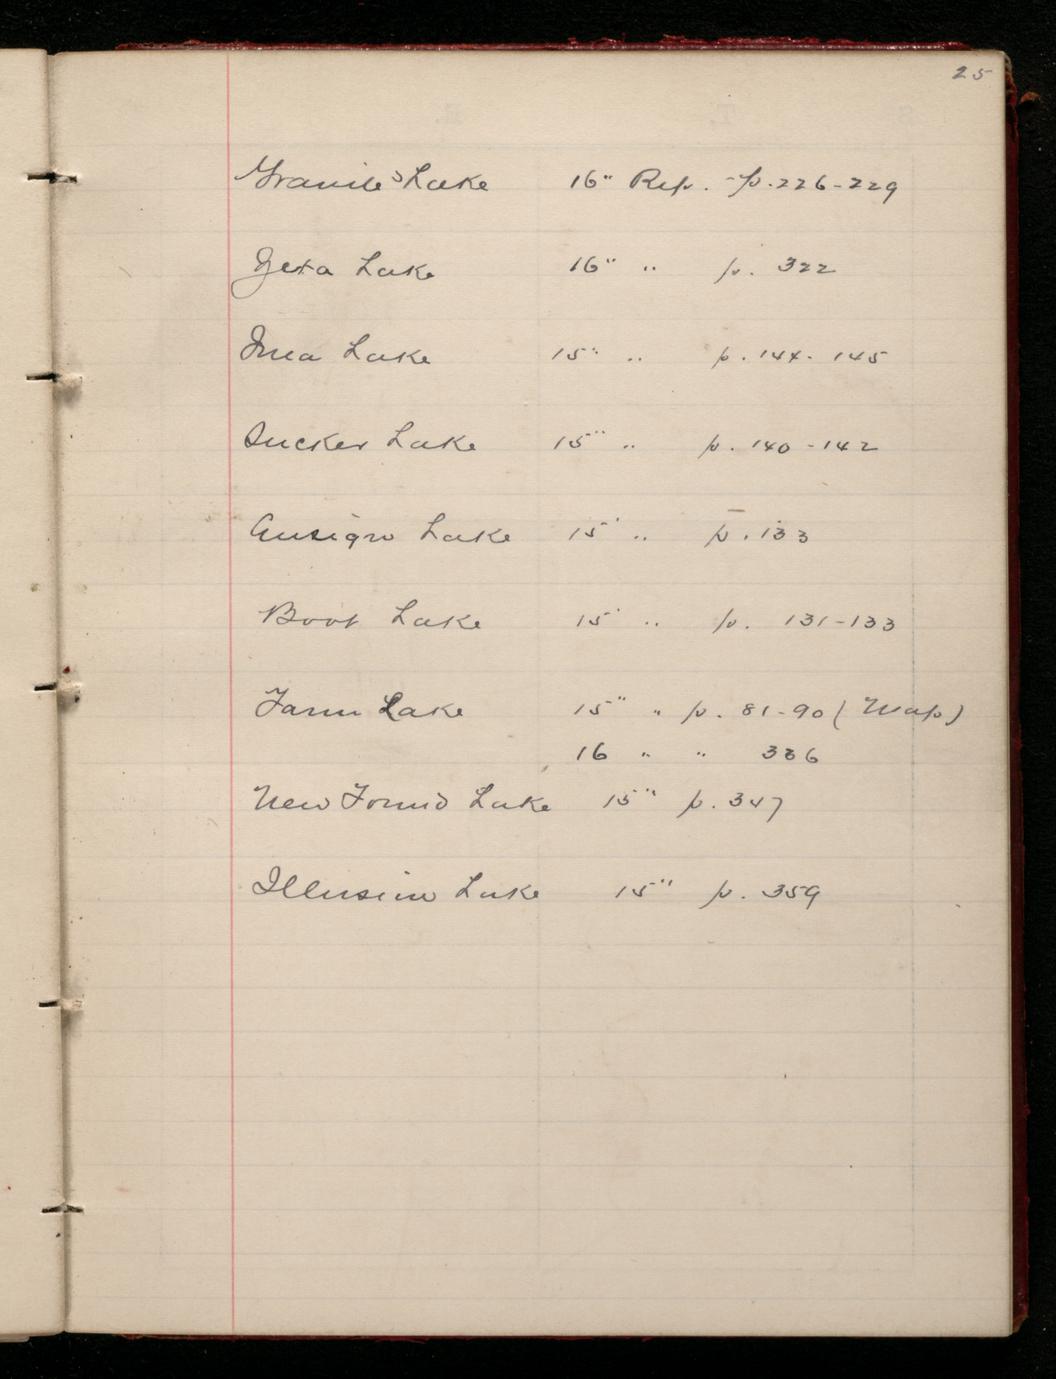 25
Granite Lake 16" Rep. p. 226-229
Zeta Lake 16" " p. 322
Ima Lake 15" " p. 144-145
Sucker Lake 15" " p. 140-142
Ensign Lake 15" " p. 133
Boot Lake 15" " p. 131-133
Farm Lake 15" " p. 81-90 (Map)
16 " " 336
New Found Lake 15" p. 347
Illusion Lake 15" p. 359